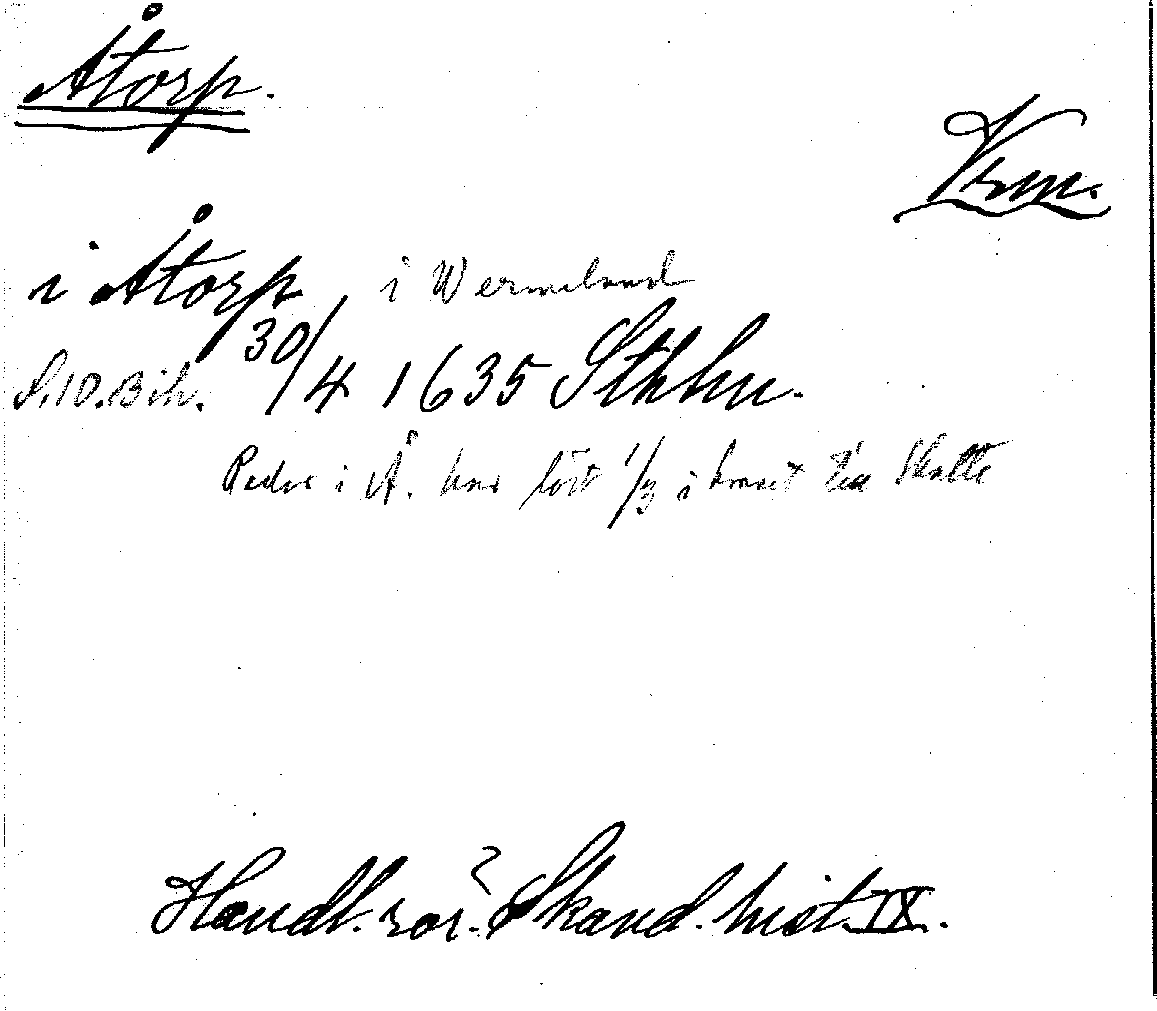 Åtorp.
Vrm.
i Åtorp, i Wermeland
S.10.Bih. 30/4 1635 Sthlm.
Pedre i Å. har köst 1/3 i till Skatte
Handl. rör. Skand. hist. IX.